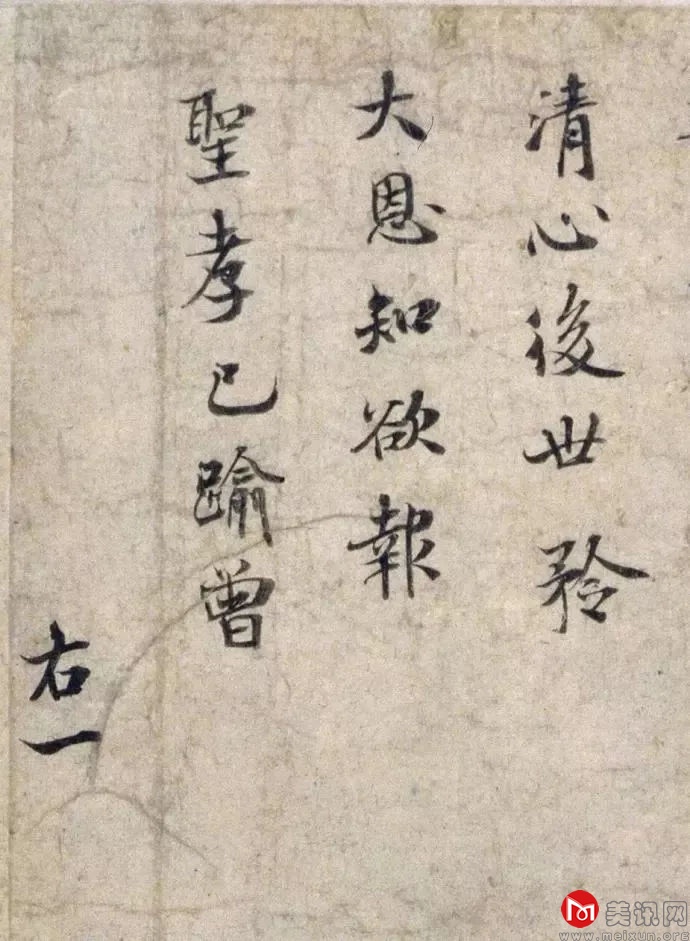 清心後世矜
大恩知欲報
聖孝已踰曾
右一
美讯网
www.meixun.org